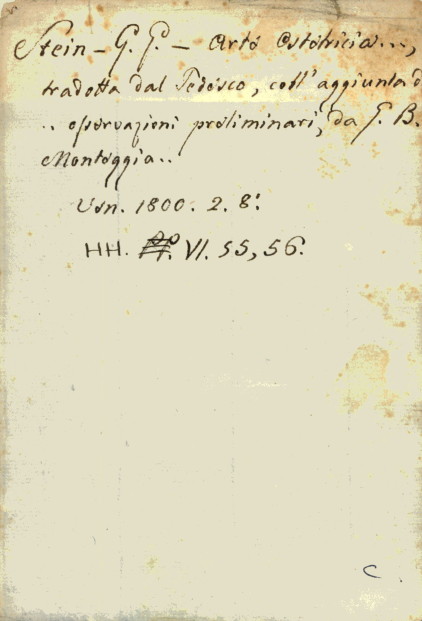 Stein - G. G. - Arte Ostetricia...,
tradotta dal Tedesco, coll' aggiunta d
.. osservazioni preliminari, da G. B.
Monteggia..
Ven. 1800. 2. 8.º
HH. VI. 55, 56.
C